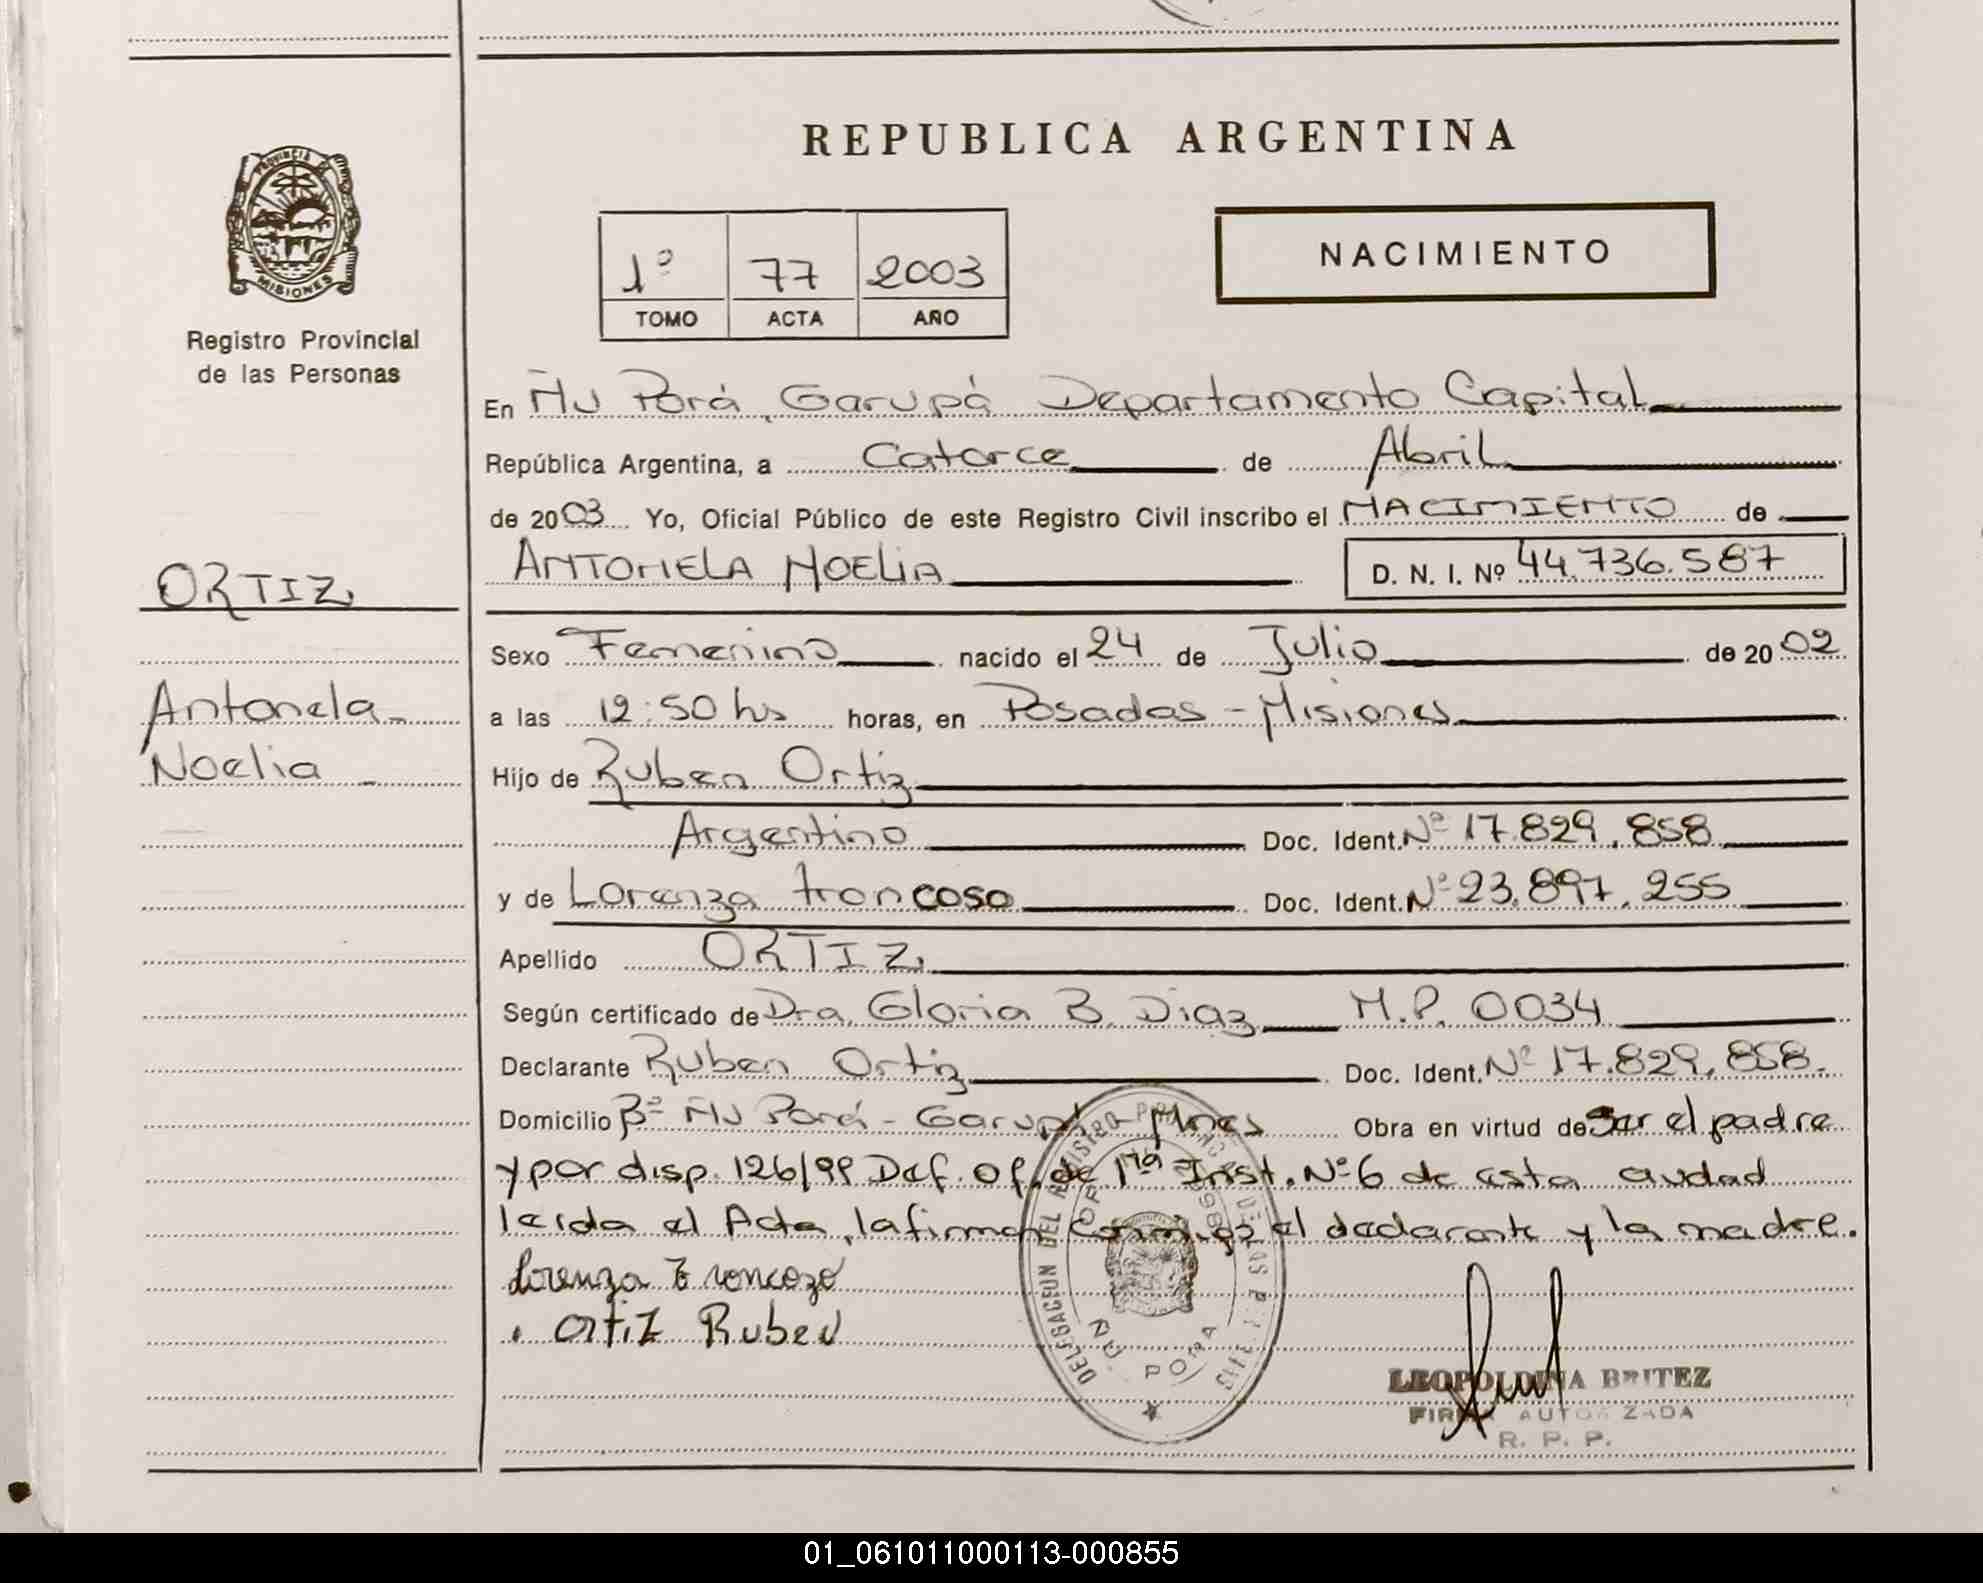 REPUBLICA ARGENTINA
PROVINCIA DE
MISIONES
Registro Provincial
de las Personas
1º 77 2003
TOMO ACTA AÑO
NACIMIENTO
En Ñu Porá, Garupá Departamento Capital
República Argentina, a Catorce de Abril
de 2003 Yo, Oficial Público de este Registro Civil inscribo el NACIMIENTO de
ANTONELA NOELIA D. N. I. Nº 44.736.587
ORTIZ,
Antonela
Noelia
Sexo Femenino nacido el 24 de Julio de 2002
a las 12:50 hs horas, en Posadas - Misiones
Hijo de Ruben Ortiz
Argentino Doc. Ident. Nº 17.829.858
y de Lorenza troncoso Doc. Ident. Nº 23.897.255
Apellido ORTIZ,
Según certificado de Dra. Gloria B. Diaz M.P. 0034
Declarante Ruben Ortiz Doc. Ident. Nº 17.829.858.
Domicilio Bº Ñu Porá - Garupá - Mnes Obra en virtud de Ser el padre
y por disp. 126/99 Def. Of. de 1ra Inst. Nº 6 de esta ciudad
leida el Acta, la firman conmigo el declarante y la madre.
Lorenza Troncozo
Ortiz Ruben
DELEGACION DEL REGISTRO PROVINCIAL DE LAS PERSONAS
ÑU PORA
LEOPOLDINA BRITEZ
FIRMA AUTORIZADA
R. P. P.
01_061011000113-000855